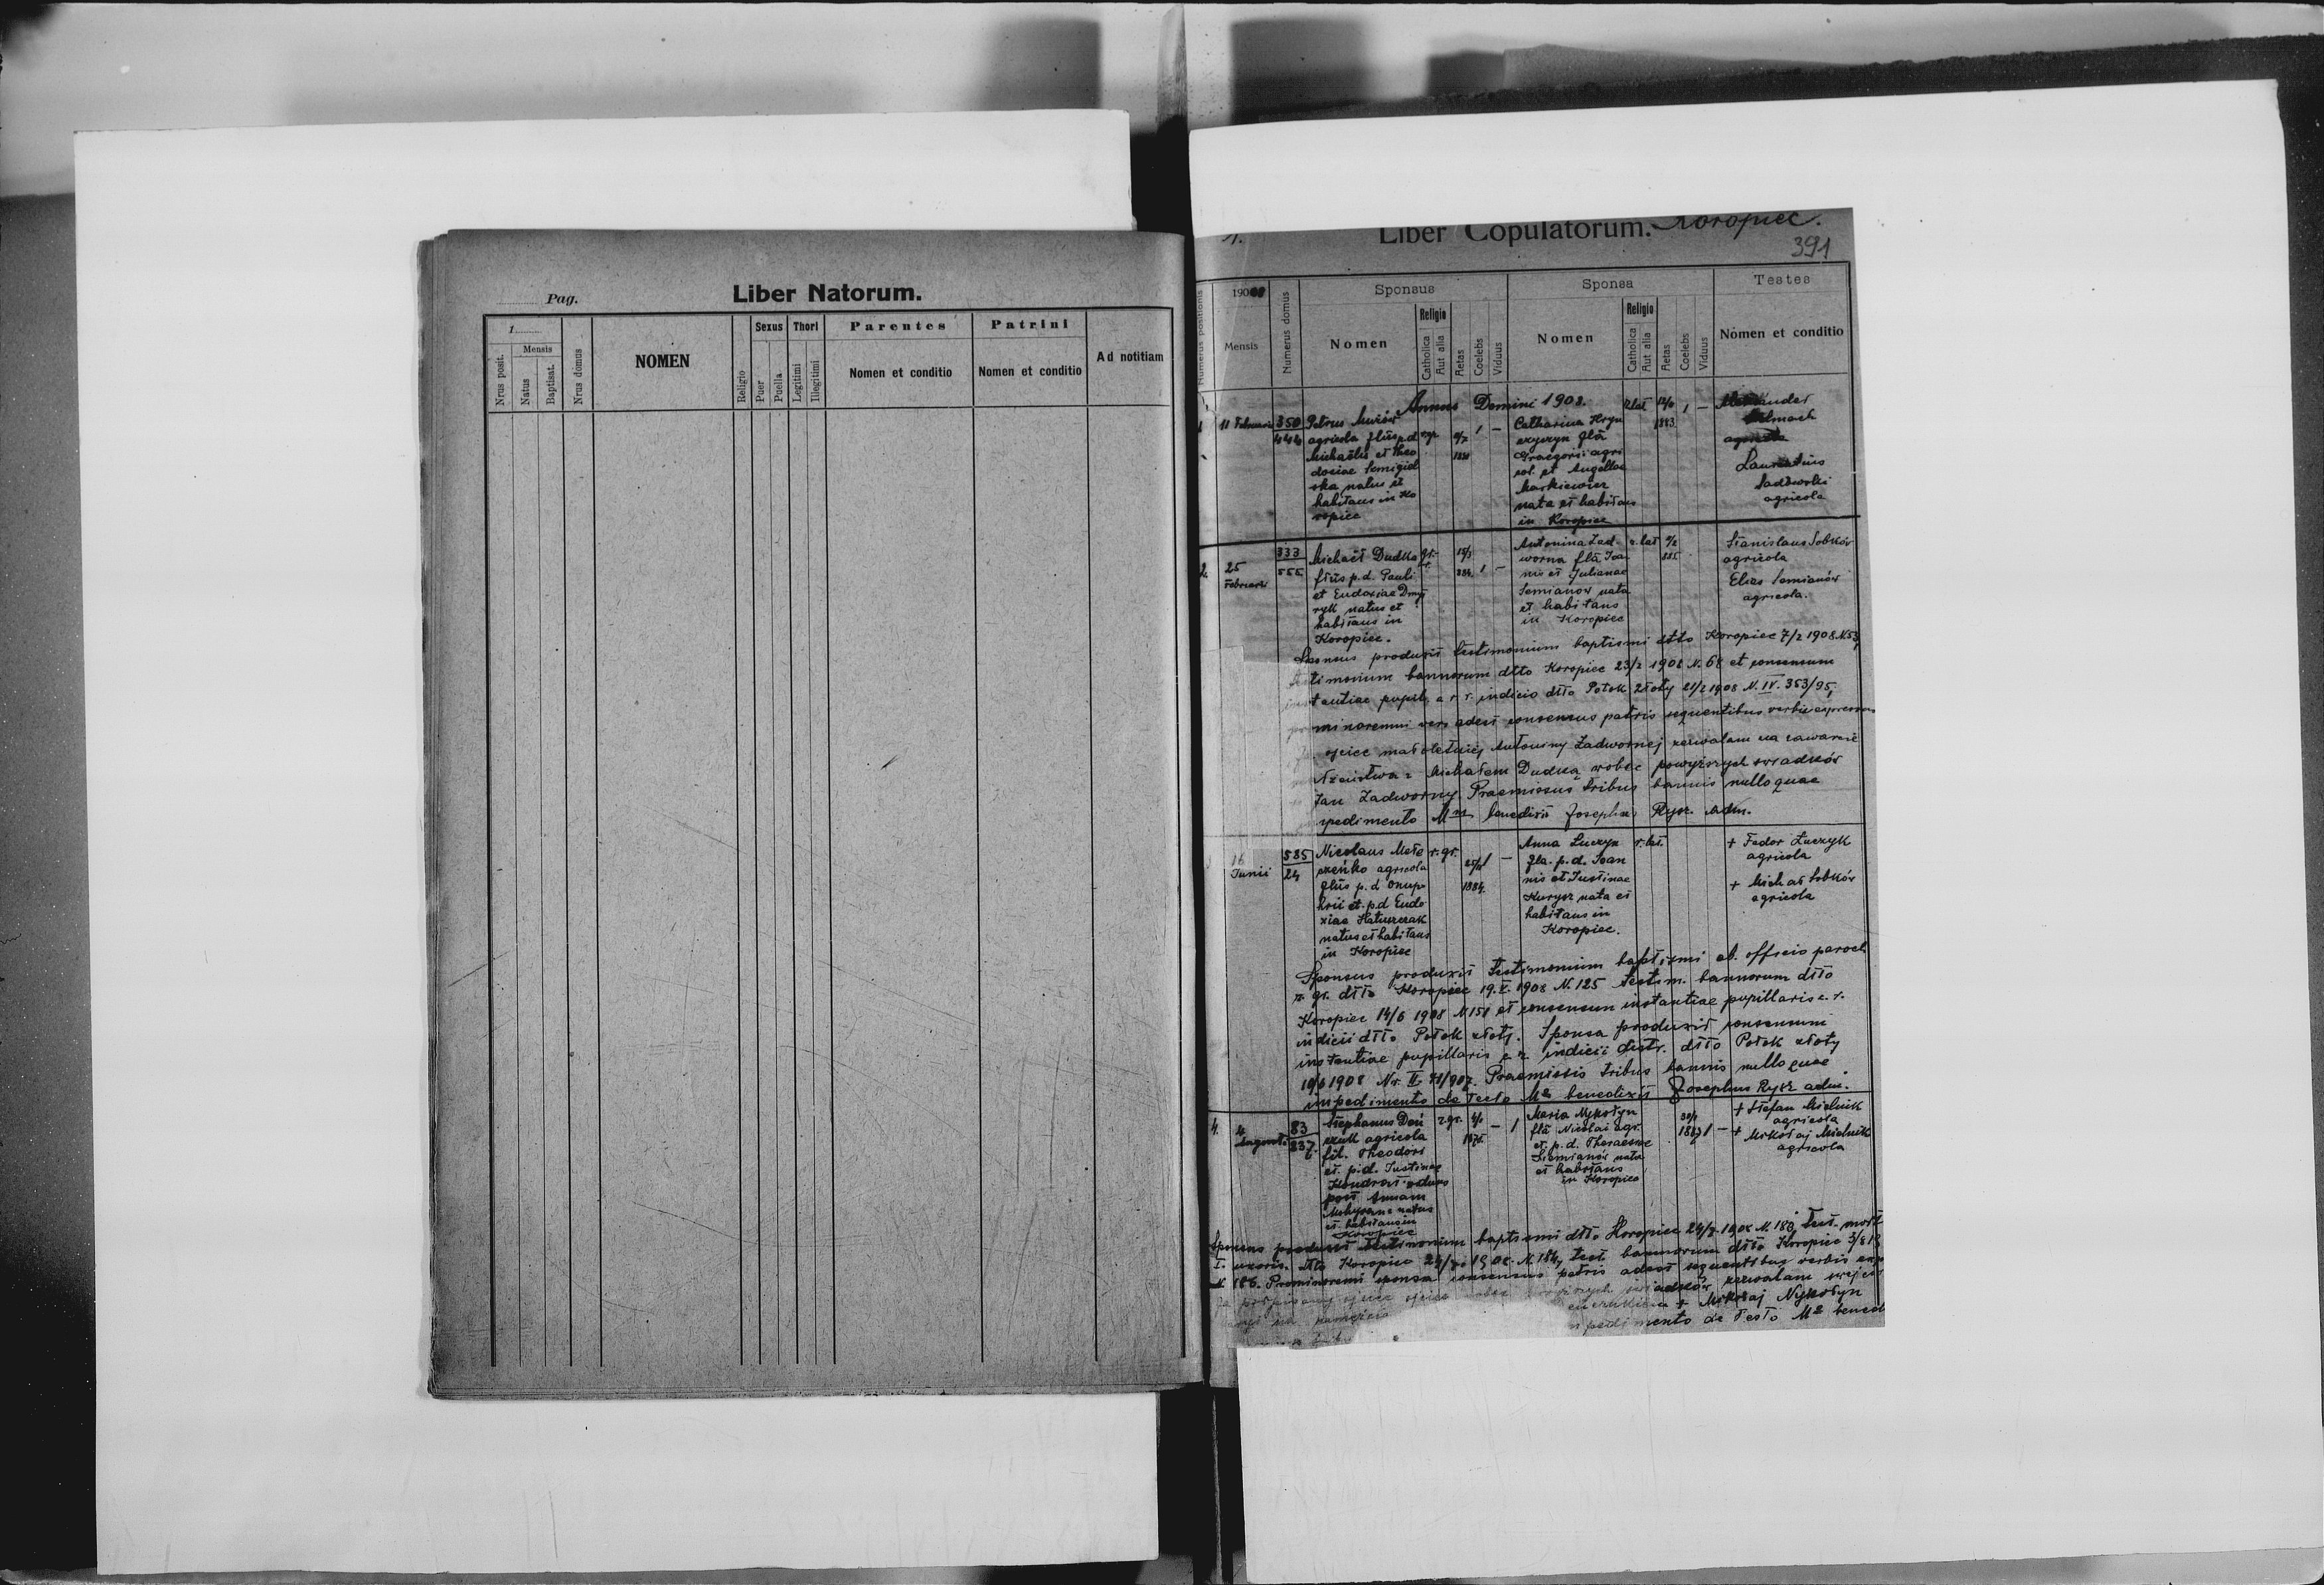 Pag.
Liber Natorum.
1
Mensis
Nrus posit.
Natus
Baptisat.
Nrus domus
NOMEN
Religio
Sexus
Puer
Puella
Thori
Legitimi
Illegitimi
Parentes
Nomen et conditio
Patrini
Nomen et conditio
Ad notitiam
Liber Copulatorum. Koropiec.
391
Numerus positionis
1908
Mensis
Numerus domus
Sponsus
Nomen
Religio
Catholica
Aut alia
Aetas
Coelebs
Viduus
Sponsa
Nomen
Religio
Catholica
Aut alia
Aetas
Coelebs
Viduus
Testes
Nomen et conditio
Annus Domini 1908.
11 Februarii
350
444
Petrus
agricola filius p.d.
Michaelis et Theo
dosiae
ska natus et
habitans in Ko
ropiec
1
Catharina Hryn
Graegorii agri
col. et Angellae
Markiewicz
nata et habitans
in Koropiec
r.lat
1883
1
agricola
Laurentius
Sadowski
agricola
2.
25
Februarii
333
555
Michael Dudka
filius p.d. Pauli
et Eudoxiae Dmy
ryk natus et
habitans in
Koropiec.
gr.
15/3
884
1
Antonina Zad
worna fla Joa
nis et Julianae
Semianow nata
et habitans
in Koropiec
r. lat
885
Stanislaus Sobków
agricola
Elias Semianów
agricola.
Sponsus produxit testimonium baptismi dtto Koropiec 7/2 1908 N.53,
timonium bannorum dtto Koropiec 23/2 1908 N. 68 et consensum
tantiae pupill. a r. indicio dtto Potok Złoty 21/2 1908 N. IV. 353/95,
minorenni vero adest consensus patris sequentibus verbis expressus
ojciec małoletniej Antoniny Zadwornej zezwalam na zawarcie
z Michałem Dudką wobec powyższych świadków
Jan Zadworny. Praemissis tribus bannis nulloquae
impedimento benedixit Josephus Rysz. adm.
16
Junii
585
24
Nicolaus Mele
szeńko agricola
filius p.d. Onup
hrii et p.d. Eudo
xiae Hatuszczak
natus et habitans
in Koropiec
r. gr.
1884.
1
Anna Luczyn
fla. p.d. Joan
nis et Justinae
Kurysz nata et
habitans in
Koropiec.
r. lat.
+ Fedor Łuczyk
agricola
+ Michał Sobków
agricola
Sponsus produxit testimonium baptismi ab officio paroch
r. gr. dtto Koropiec 19. V. 1908 N. 125 testim. bannorum dtto
Koropiec 14/6 1908 N 151 et consensum instantiae pupillaris c. r.
indicii dtto Potok złoty. Sponsa produxit consensum
instantiae pupillaris c. r. indicii distr. dtto Potok złoty
10/6 1908 Nr. II. 71/907. Praemissis tribus bannis nulloquae
impedimento detecto benedixit Josephus Rysz adm.
4.
4
Augusti
83
237
Stephanus Dań
czuk agricola
fil. Theodori
et p.d. Justinae
Kondrat viduus
post Annam
natus
et habitans in
Koropiec
r. gr.
1
Maria Nykołyn
fla Nicolai agr.
et p.d. Theresiae
Siemianów nata
et habitans
in Koropiec
1883
1
+ Stefan Mielnik
agricola
+ Mikołaj Mielnik
agricola
Sponsus produxit testimonium baptismi dtto Koropiec 24/7 1908 N. 183, test. mort
I. uxoris dtto Koropiec 24/7 1908 N. 184, test. bannorum dtto Koropiec 3/8
N. 186. Prominorenni sponsa consensus patris adest sequentibus verbis
podpisany ojciec świadków zezwalam swej
na zamęzcie + Mikołaj Nykołyn
impedimento detesto benedi